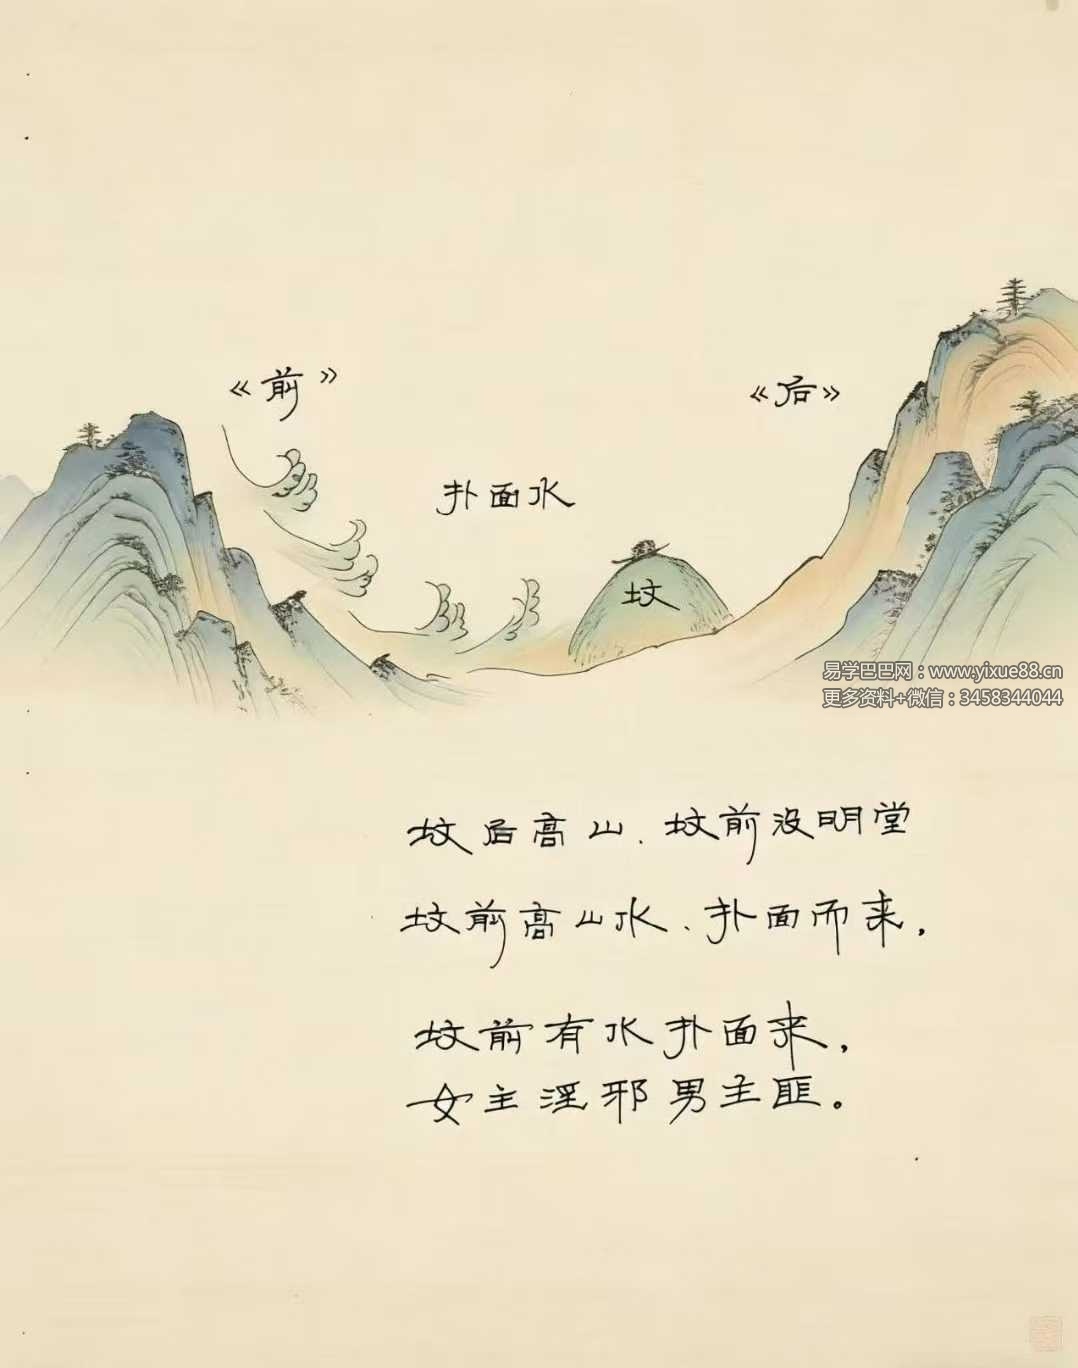 《前》
《后》
扑面水
坟
易学巴巴网：www.yixue88.cn
更多资料+微信：3458344044
坟后高山、坟前没明堂
坟前高山水、扑面而来，
坟前有水扑面来，
女主淫邪男主匪。